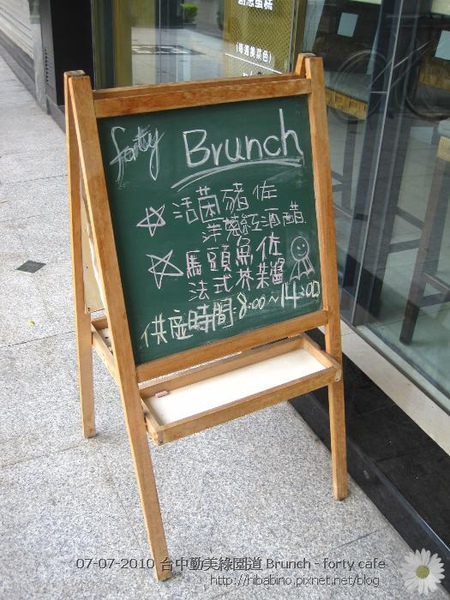 forty Brunch
活菌豬佐
洋蔥紅酒醋
馬頭魚佐
法式芥末醬
供應時間=8:00~14:00
07-07-2010 台中勤美綠園道 Brunch - forty cafe
http://hibabino.pixnet.net/blog